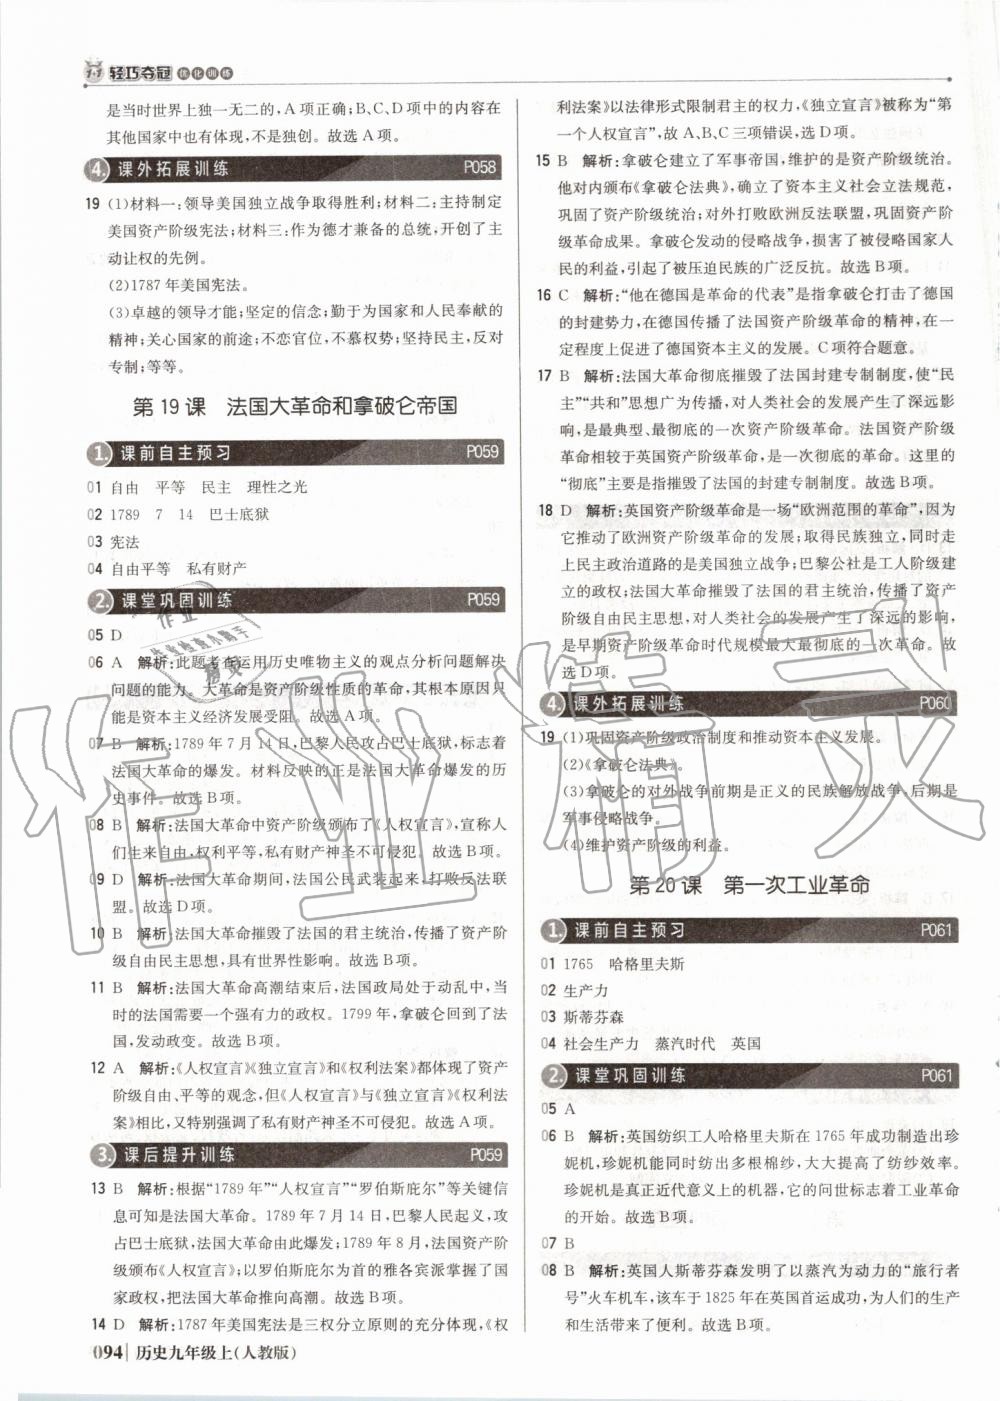 1+1 轻巧夺冠 优化训练
是当时世界上独一无二的,A项正确;B、C、D项中的内容在
其他国家中也有体现,不是独创。故选A项。
4. 课外拓展训练 P058
19 (1)材料一:领导美国独立战争取得胜利;材料二:主持制定
美国资产阶级宪法;材料三:作为德才兼备的总统,开创了主
动让权的先例。
(2)1787年美国宪法。
(3)卓越的领导才能;坚定的信念;勤于为国家和人民奉献的
精神;关心国家的前途;不恋官位,不慕权势;坚持民主,反对
专制;等等。
第19课 法国大革命和拿破仑帝国
1. 课前自主预习 P059
01 自由 平等 民主 理性之光
02 1789 7 14 巴士底狱
03 宪法
04 自由平等 私有财产
2. 课堂巩固训练 P059
05 D
06 A 解析:此题考查运用历史唯物主义的观点分析问题解决
问题的能力。大革命是资产阶级性质的革命,其根本原因只
能是资本主义经济发展受阻。故选A项。
07 B 解析:1789年7月14日,巴黎人民攻占巴士底狱,标志着
法国大革命的爆发。材料反映的正是法国大革命爆发的历
史事件。故选B项。
08 B 解析:法国大革命中资产阶级颁布了《人权宣言》,宣称人
们生来自由,权利平等,私有财产神圣不可侵犯。故选B项。
09 D 解析:法国大革命期间,法国公民武装起来,打败反法联
盟。故选D项。
10 B 解析:法国大革命摧毁了法国的君主统治,传播了资产阶
级自由民主思想,具有世界性影响。故选B项。
11 B 解析:法国大革命高潮结束后,法国政局处于动乱中,当
时的法国需要一个强有力的政权。1799年,拿破仑回到了法
国,发动政变。故选B项。
12 A 解析:《人权宣言》《独立宣言》和《权利法案》都体现了资产
阶级自由、平等的观念,但《人权宣言》与《独立宣言》《权利法
案》相比,又特别强调了私有财产神圣不可侵犯。故选A项。
3. 课后提升训练 P059
13 B 解析:根据“1789年”“人权宣言”“罗伯斯庇尔”等关键信
息可知是法国大革命。1789年7月14日,巴黎人民起义,攻
占巴士底狱,法国大革命由此爆发;1789年8月,法国资产阶
级颁布《人权宣言》;以罗伯斯庇尔为首的雅各宾派掌握了国
家政权,把法国大革命推向高潮。故选B项。
14 D 解析:1787年美国宪法是三权分立原则的充分体现,《权
094 历史九年级上(人教版)
利法案》以法律形式限制君主的权力,《独立宣言》被称为“第
一个人权宣言”,故A、B、C三项错误,选D项。
15 B 解析:拿破仑建立了军事帝国,维护的是资产阶级统治。
他对内颁布《拿破仑法典》,确立了资本主义社会立法规范,
巩固了资产阶级统治;对外打败欧洲反法联盟,巩固资产阶
级革命成果。拿破仑发动的侵略战争,损害了被侵略国家人
民的利益,引起了被压迫民族的广泛反抗。故选B项。
16 C 解析:“他在德国是革命的代表”是指拿破仑打击了德国
的封建势力,在德国传播了法国资产阶级革命的精神,在一
定程度上促进了德国资本主义的发展。C项符合题意。
17 B 解析:法国大革命彻底摧毁了法国封建专制制度,使“民
主”“共和”思想广为传播,对人类社会的发展产生了深远影
响,是最典型、最彻底的一次资产阶级革命。法国资产阶级
革命相较于英国资产阶级革命,是一次彻底的革命。这里的
“彻底”主要是指摧毁了法国的封建专制制度。故选B项。
18 D 解析:英国资产阶级革命是一场“欧洲范围的革命”,因为
它推动了欧洲资产阶级革命的发展;取得民族独立,同时走
上民主政治道路的是美国独立战争;巴黎公社是工人阶级建
立的政权;法国大革命摧毁了法国的君主统治,传播了资产
阶级自由民主思想,对人类社会的发展产生了深远的影响,
是早期资产阶级革命时代规模最大最彻底的一次革命。故
选D项。
4. 课外拓展训练 P060
19 (1)巩固资产阶级政治制度和推动资本主义发展。
(2)《拿破仑法典》。
(3)拿破仑的对外战争前期是正义的民族解放战争,后期是
军事侵略战争。
(4)维护资产阶级的利益。
第20课 第一次工业革命
1. 课前自主预习 P061
01 1765 哈格里夫斯
02 生产力
03 斯蒂芬森
04 社会生产力 蒸汽时代 英国
2. 课堂巩固训练 P061
05 A
06 B 解析:英国纺织工人哈格里夫斯在1765年成功制造出珍
妮机,珍妮机能同时纺出多根棉纱,大大提高了纺纱效率。
珍妮机是真正近代意义上的机器,它的问世标志着工业革命
的开始。故选B项。
07 B
08 B 解析:英国人斯蒂芬森发明了以蒸汽为动力的“旅行者
号”火车机车,该车于1825年在英国首运成功,为人们的生产
和生活带来了便利。故选B项。
作业精灵